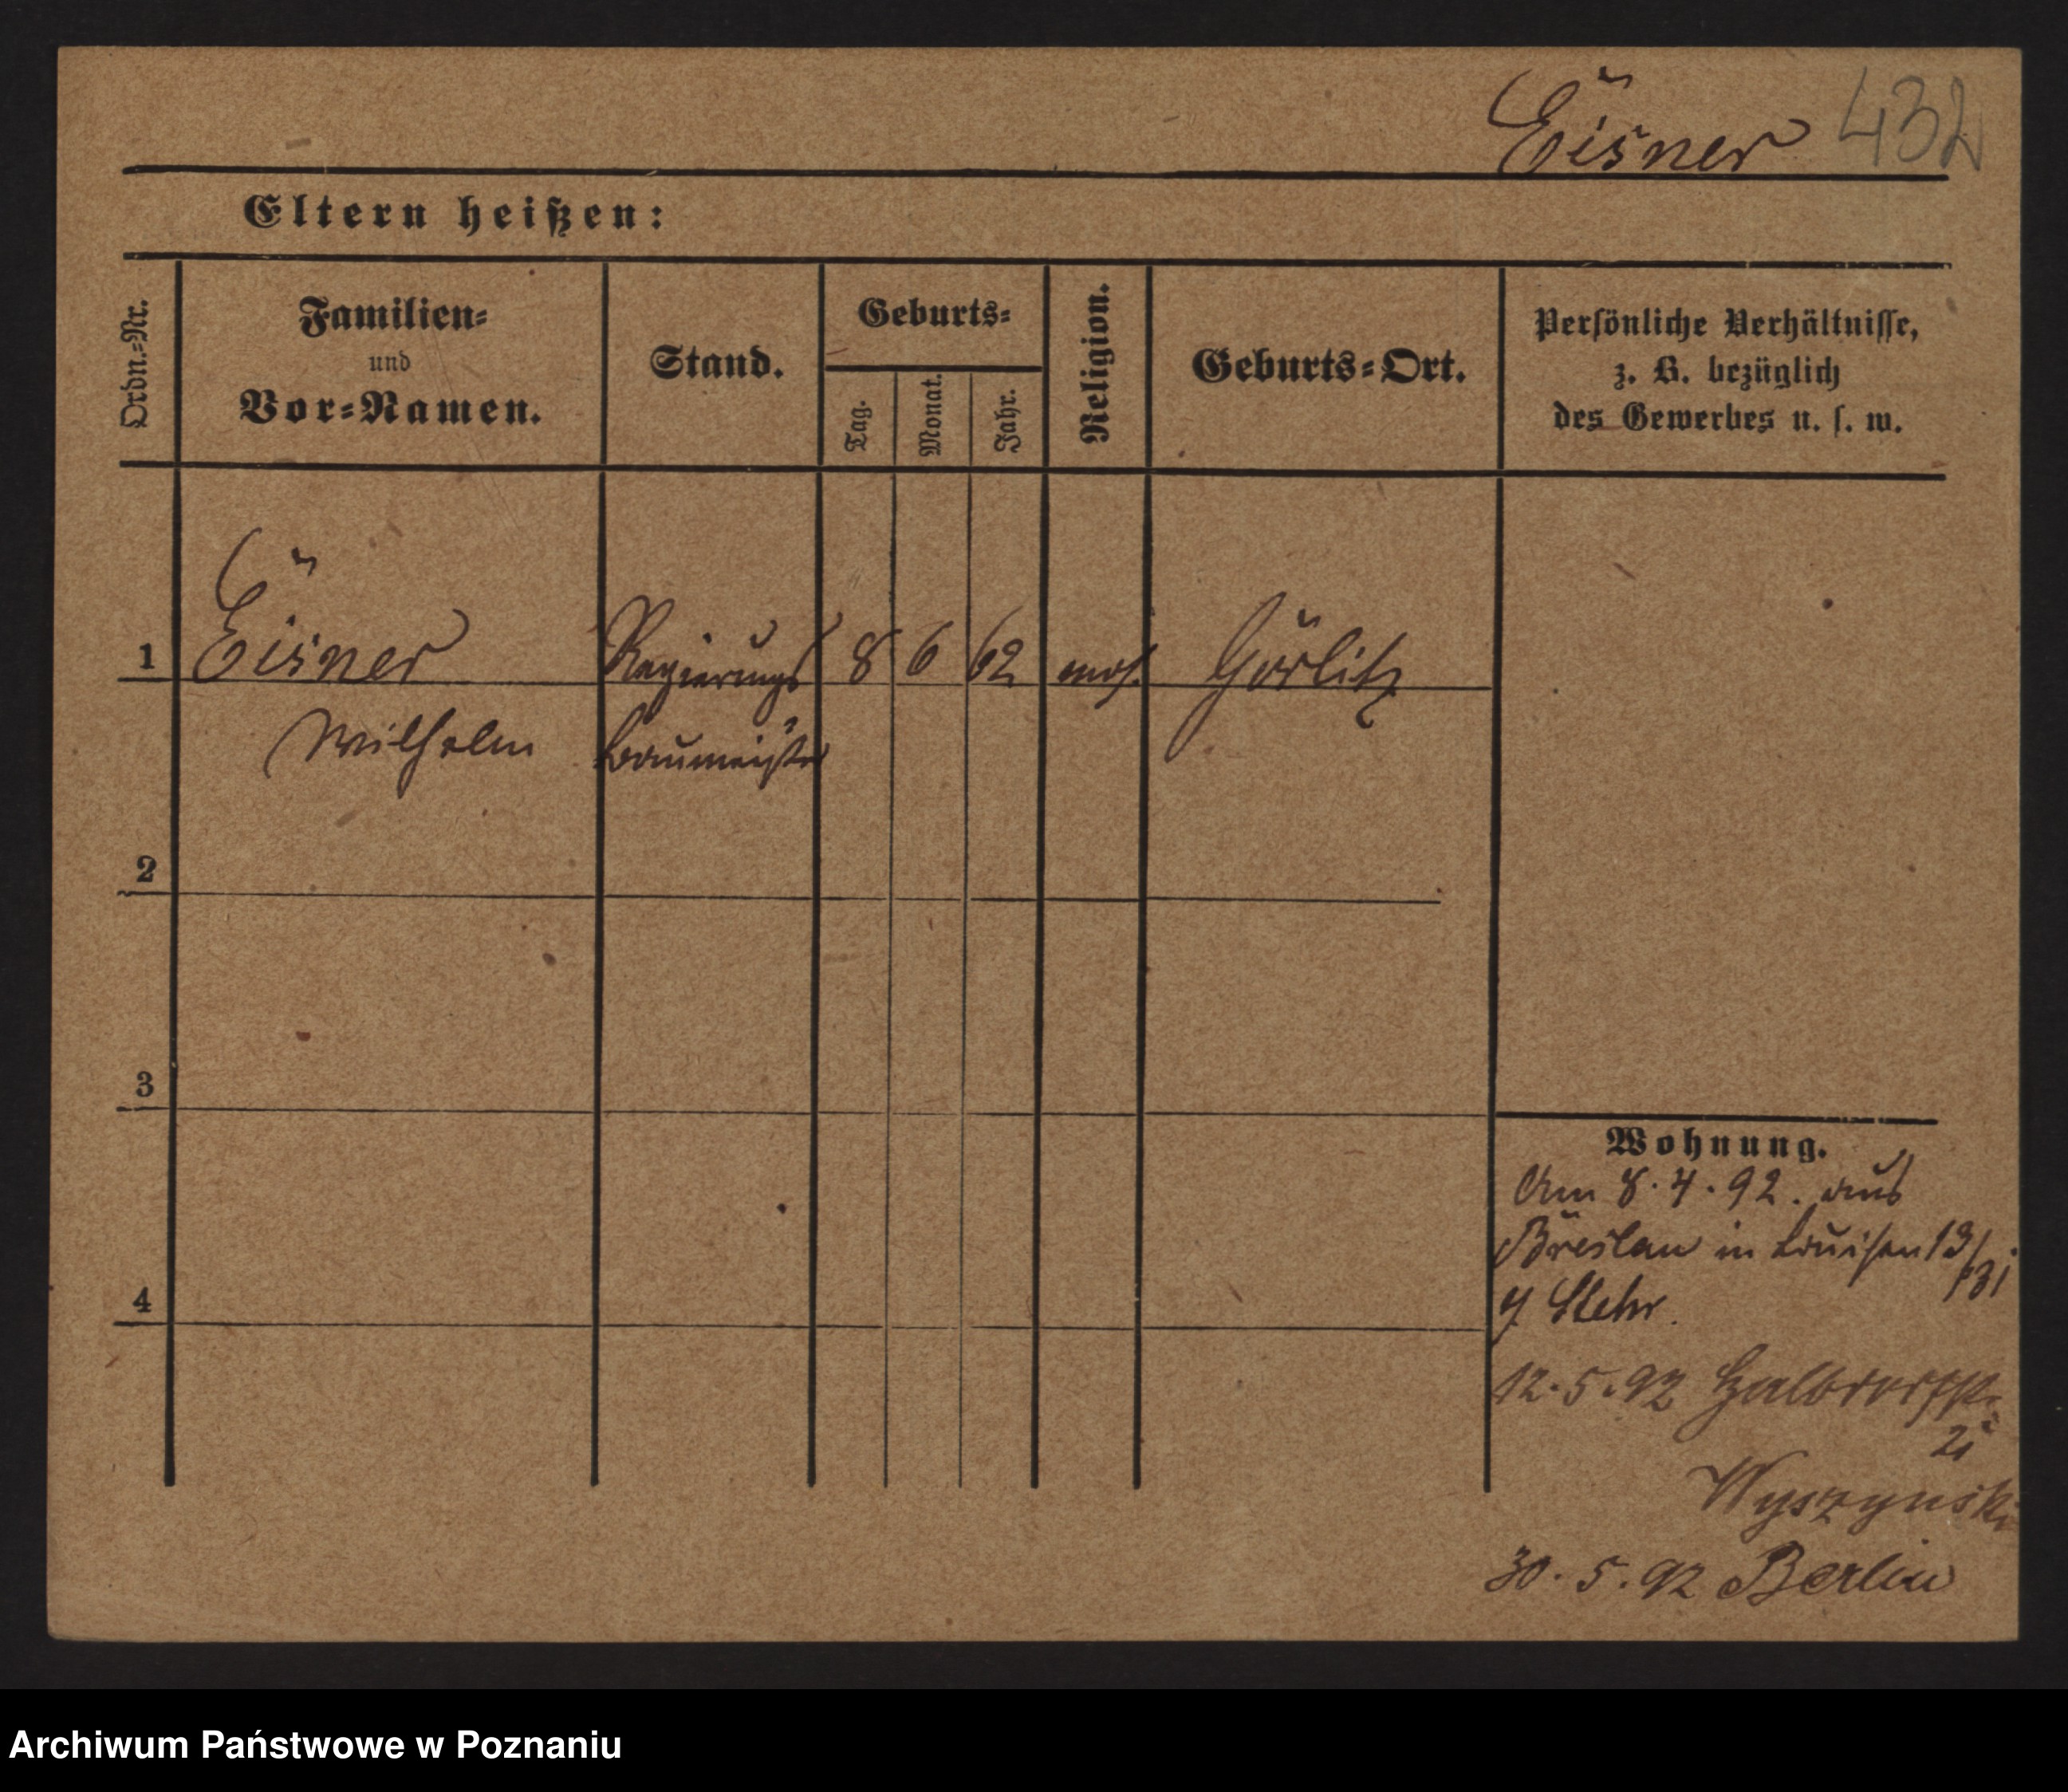 Eisner 432
Eltern heißen:
Ordn.=Nr.
Familien=
und
Vor=Namen.
Stand.
Geburts=
Tag.
Monat.
Jahr.
Religion.
Geburts=Ort.
Persönliche Verhältnisse,
z. B. bezüglich
des Gewerbes u. s. w.
1 Eisner Regierungs 8 6 62 mos. Görlitz
Wilhelm Baumeister
2
3
4
Wohnung.
Am 8.4.92. aus
Breslau in Louisen 13/
b/ Stehr.
12.5.92 Halbdorfstr.
Wyszynski
30.5.92 Berlin
Archiwum Państwowe w Poznaniu